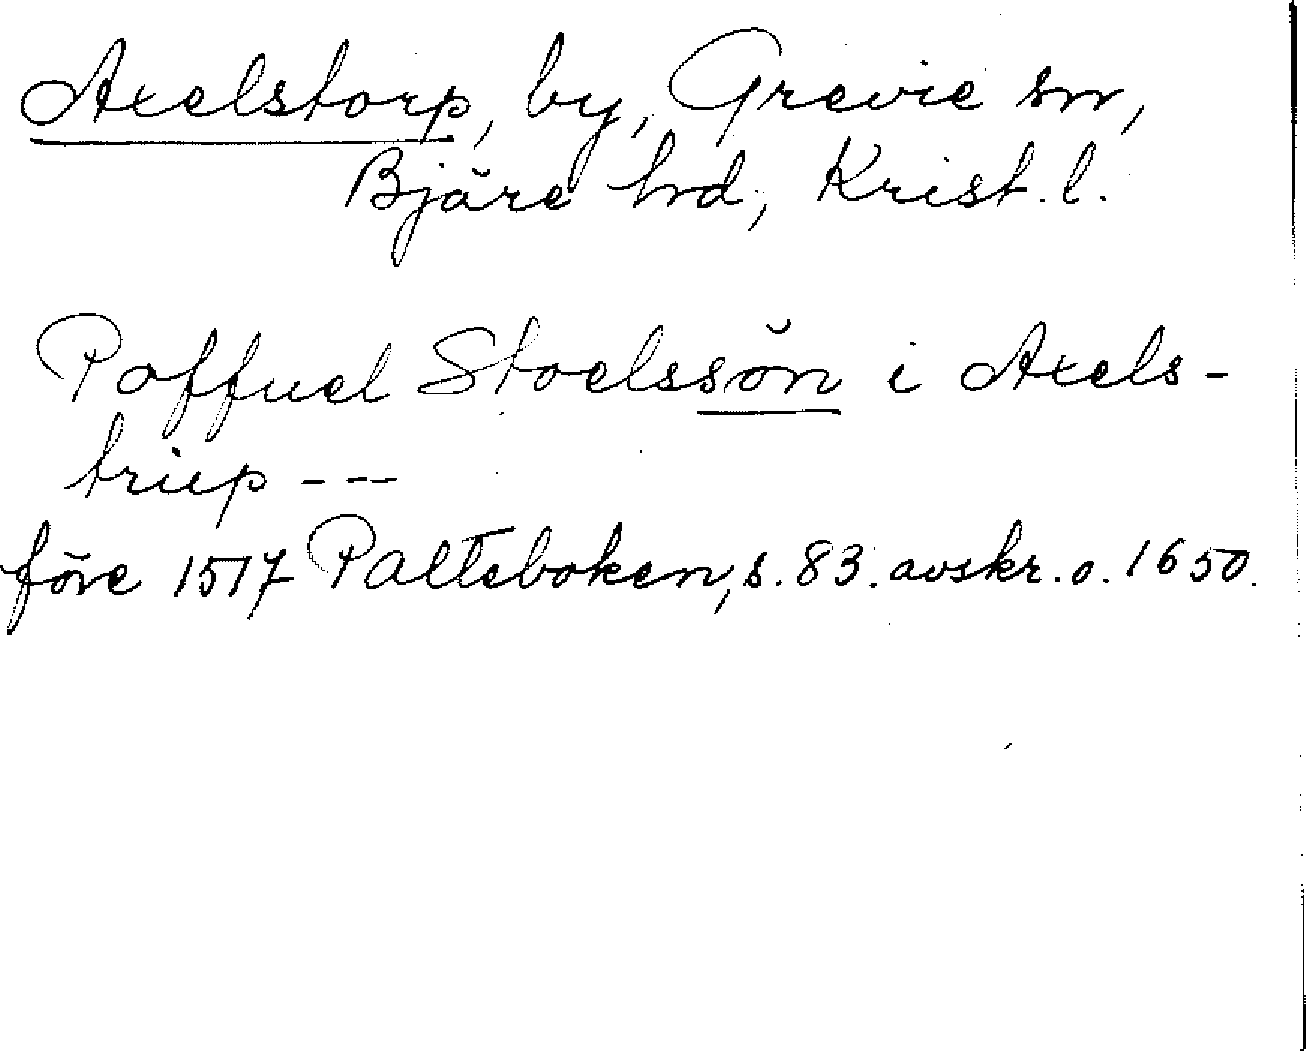 Axelstorp, by, Grevie sn,
Bjäre hd, Krist. l.
Poffuel Stoelssön i Axels-
trup ---
före 1517 Palteboken, s. 83. avskr. o. 1650.